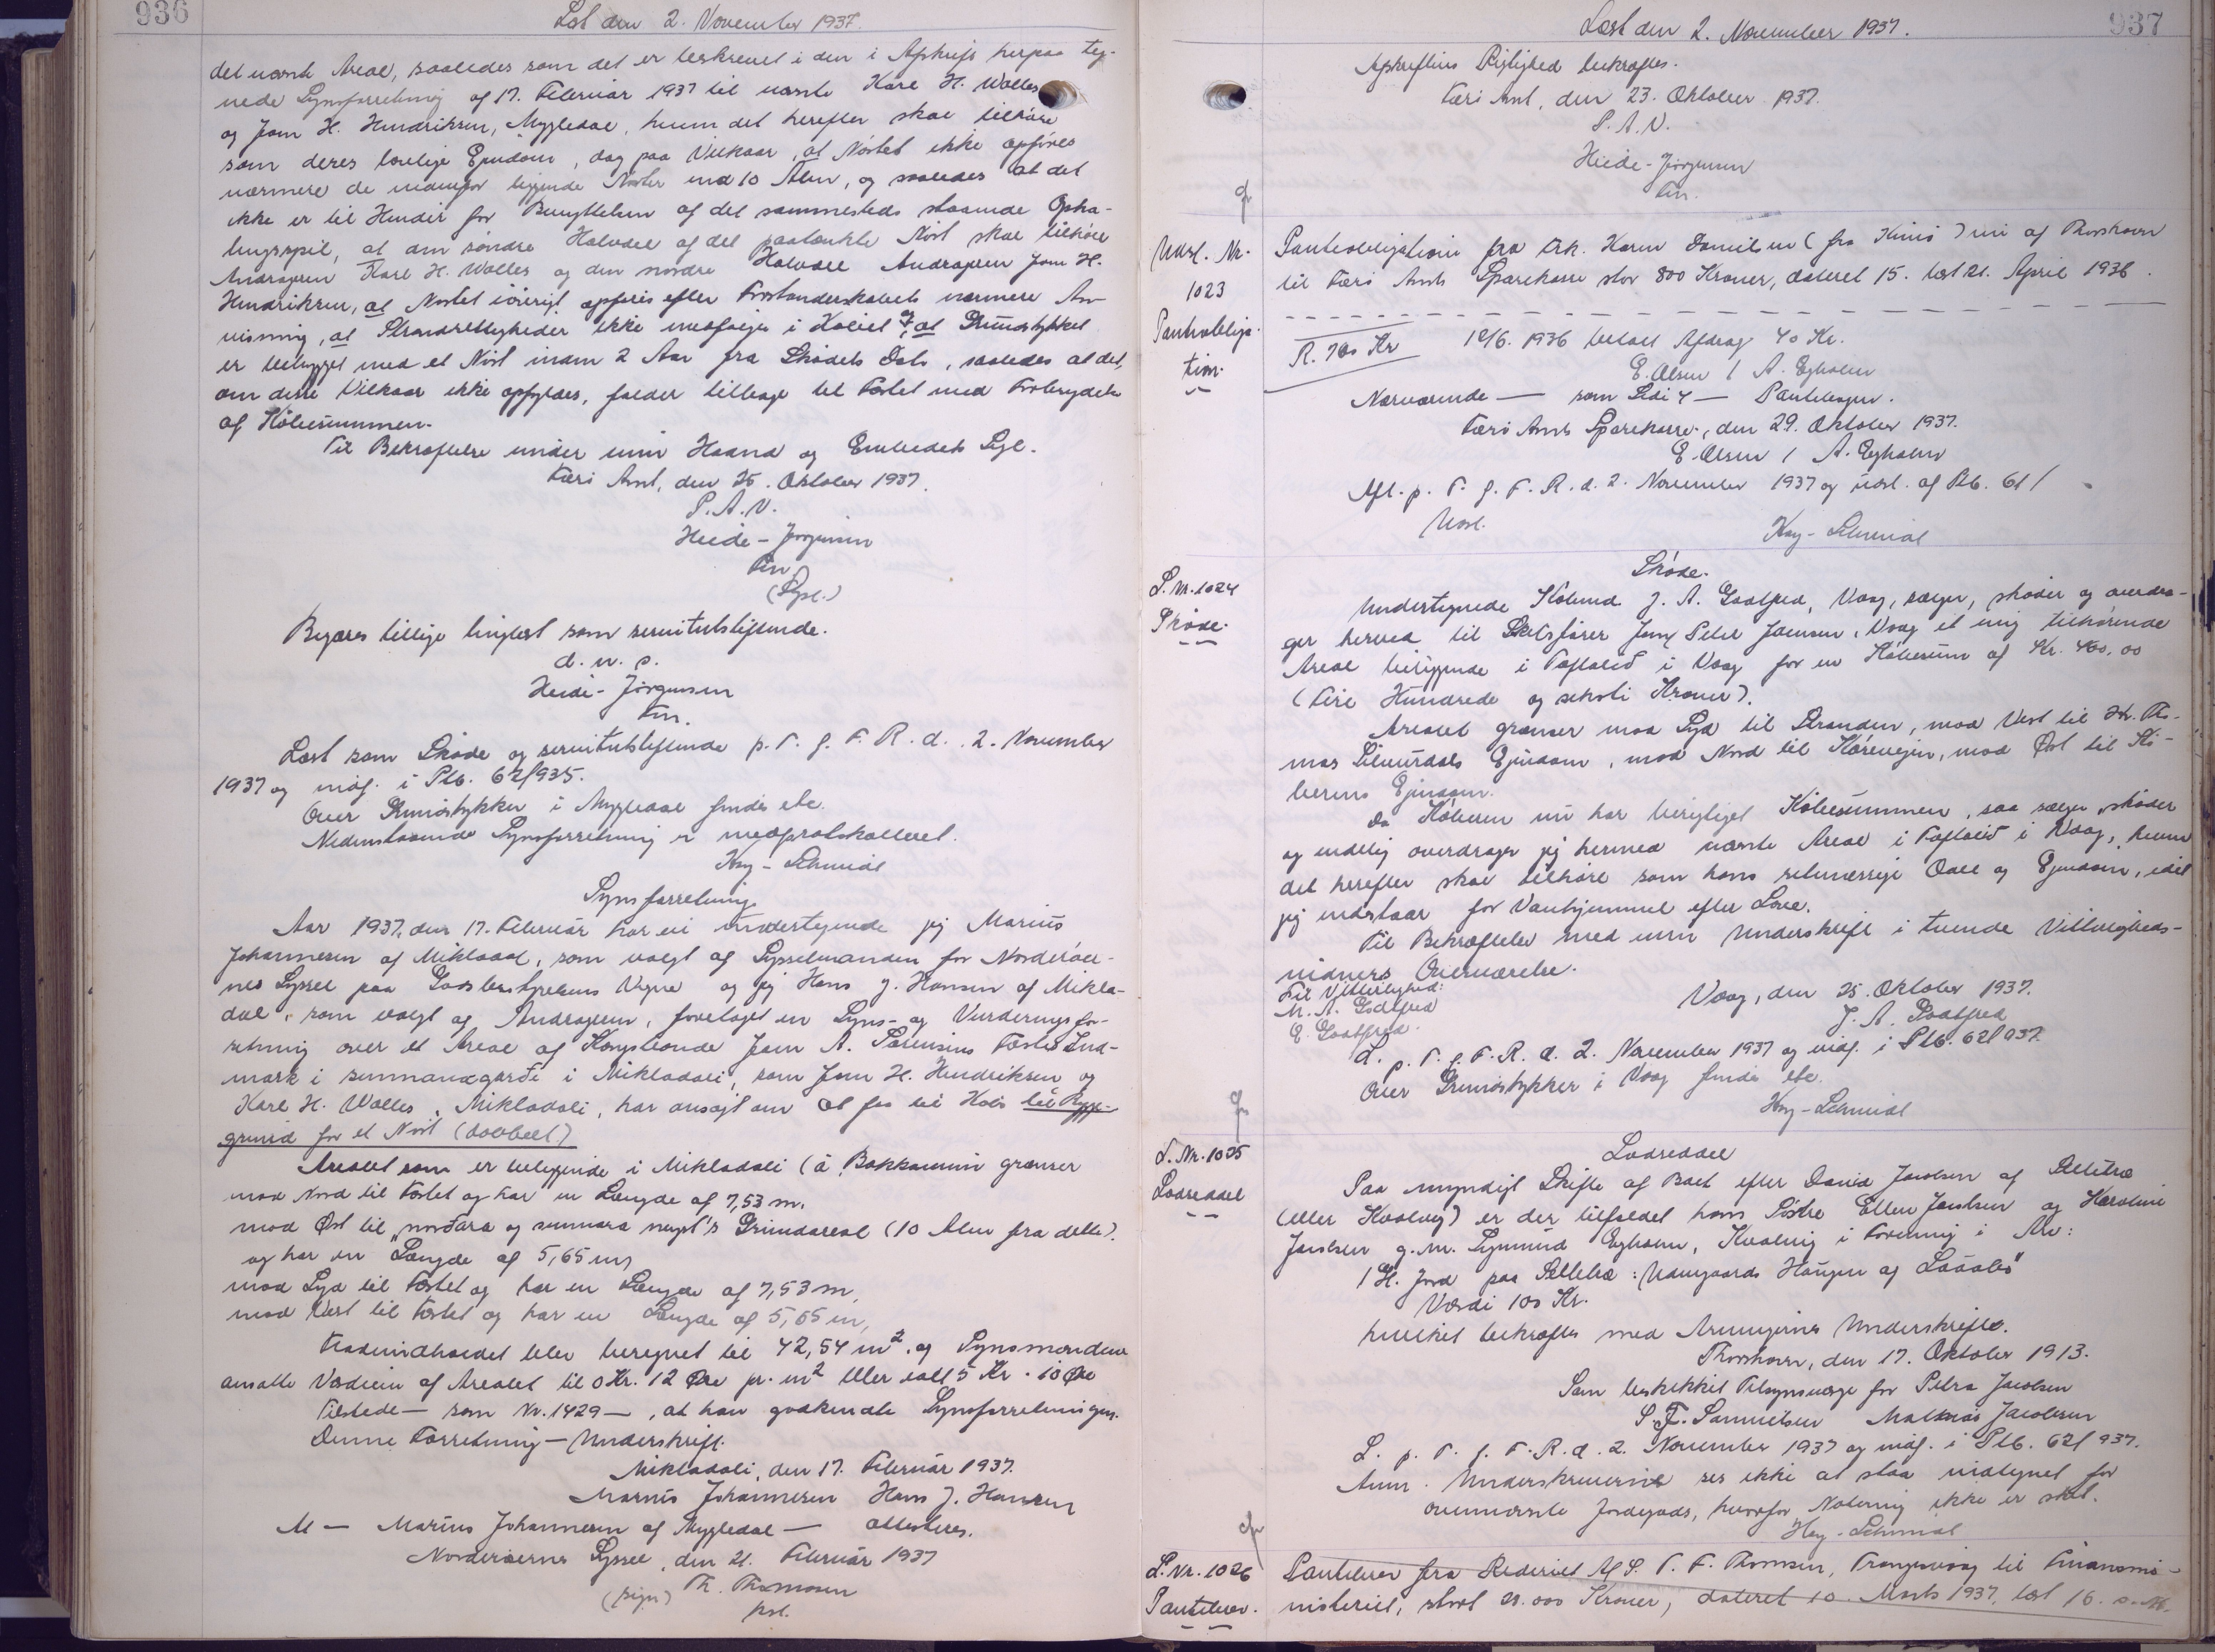 936
Læst den 2. November 1937.
det nævnte Areal, saaledes som det er beskrevet i den i Afskrift herpaa teg-
nede Synsforretning af 17. Februar 1937 til nævnte Karl H. Walles
og Joen H. Hendriksen, Mygledal, hvem det herefter skal tilhøre
som deres lovlige Ejendom, dog paa Vilkaar, at Nøstet ikke opføres
nærmere de nedenfor liggende Nøster end 10 Alen, og saaledes at det
ikke er til Hinder for Benyttelsen af det sammesteds staaende Opha-
lingsspil, at den søndre Halvdel af det paatænkte Nøst skal tilhøre
Andrageren Karl H. Walles og den nordre Halvdel Andrageren Joen H.
Hendriksen, at Nøstet iøvrigt opføres efter Forstanderskabets nærmere An-
visning, at Strandrettigheder ikke medfølger i Købet og at Grundstykket
er bebygget med et Nøst inden 2 Aar fra Skødets Dato, saaledes at det,
om disse Vilkaar ikke opfyldes, falder tilbage til Fæstet med Fortabelse
af Købesummen.
Til Bekræftelse under min Haand og Embedets Segl.
Færø Amt, den 25. Oktober 1937.
P. A. V.
Heide-Jørgensen
Fm.
(Segl.)
Begæres tillige tinglæst som servitutstiftende.
d. u. s.
Heide-Jørgensen
Fm.
Læst som Skøde og servitutstiftende p. T. f. F. R. d. 2. November
1937 og indf. i Ptb. 62/935.
Over Grundstykker i Mygledal findes etc.
Nedenstaaende Synsforretning er medprotokolleret.
Kay-Schmidt
Synsforretning
Aar 1937, den 17. Februar har vi undertegnede jeg Marius
Johannesen af Mikladal, som valgt af Sysselmanden for Norderøer-
nes Syssel paa Godsbestyrelsens Vegne og jeg Hans J. Hansen af Mikla-
dal, som valgt af Andrageren, foretaget en Syns- og Vurderingsfor-
retning over et Areal af Kongsbonde Joen A. Sørensens Fæstes Ind-
mark i summanægarði i Mikladali, som Joen H. Hendriksen og
Karl H. Walles, Mikladali, har ansøgt om at faa til Købs til Bygge-
grund for et Nøst (dobbelt)
Arealet som er beliggende i Mikladali (á Bakkanum grænser
mod Nord til Fæstet og har en Længde af 7,53 m.
mod Øst til "norðara og sunnara neyst"s Grundareal (10 Alen fra dette).
og har en Længde af 5,65 m,
mod Syd til Fæstet og har en Længde af 7,53 m,
mod Vest til Fæstet og har en Længde af 5,65 m,
Fladeindholdet blev beregnet til 42,54 m². og Synsmændene
ansatte Værdien af Arealet til 0 Kr. 12 Øre pr. m² eller ialt 5 Kr. 10 Øre
Tilstede — som Nr. 1429 —, at han godkendte Synsforretningen.
Denne Forretning — Underskrift.
Mikladali, den 17. Februar 1937.
Marius Johannesen Hans J. Hansen
At — Marius Johannesen af Mygledal — attesteres.
Norderøernes Syssel, den 21. Februar 1937
(sign) Th. Thomassen
kst.
937
Læst den 2. November 1937.
Afskriftens Rigtighed bekræftes.
Færø Amt, den 23. Oktober 1937.
P. A. V.
Heide-Jørgensen
Fm.
Udsl. Nr.
1023
Pantobliga-
tion.
Pantobligation fra Frk. Karen Danielsen (fra Kunø) nu af Thorshavn
til Færø Amts Sparekasse stor 800 Kroner, dateret 15. læst 21. April 1936.
R. 760 Kr
12/6. 1936 betalt Afdrag 40 Kr.
E. Olsen / A. Egholm
Nærværende — som Side 4 — Pantebogen.
Færø Amts Sparekasse, den 29. Oktober 1937.
E. Olsen / A. Egholm
Afl. p. T. f. F. R. d. 2. November 1937 og udsl. af Ptb. 61/
Udsl.
Kay-Schmidt
L. Nr. 1024
Skøde.
Skøde.
Undertegnede Købmd. J. A. Godtfred, Vaag, sælger, skøder og overdra-
ger herved til Skibsfører Jens Peter Joensen, Vaag et mig tilhørende
Areal beliggende i Toftalið i Vaag for en Købesum af Kr. 460,00
(Fire Hundrede og seksti Kroner).
Arealet grænser mod Syd til Stranden, mod Vest til Hr. Tho-
mas Ejendom, mod Nord til Kørevejen, mod Øst til Kø-
berens Ejendom.
Da Køberen nu har berigtiget Købesummen, saa sælger, skøder
og endelig overdrager jeg hermed nævnte Areal i Toftalið i Vaag, hvem
det herefter skal tilhøre som hans retmæssige Odel og Ejendom, idet
jeg indestaar for Vanhjemmel efter Loven.
Til Bekræftelse med min Underskrift i tvende Vitterligheds-
vidners Overværelse.
Vaag, den 25. Oktober 1937.
J. A. Godtfred
Til Vitterlighed:
M. A. Godtfred
E. Godtfred.
L. p. T. f. F. R. d. 2. November 1937 og indf. i Ptb. 62/937.
Over Grundstykker i Vaag findes etc.
Kay-Schmidt
L. Nr. 1025
Lodseddel
Lodseddel
Paa myndigt Skifte af Boet efter David Jacobsen af Selletræ
(eller Kvalvig) er der tilfaldet hans Søstre Ellen Jacobsen og Karoline
Jacobsen g. m. Sigmund Egholm, Kvalvig i Forening i Arv:
1 St. Jord paa Selletræ: Udengaards Haugen af
Værdi 100 Kr.
hvilket bekræftes med Arvingernes Underskrifter.
Thorshavn, den 17. Oktober 1913.
Som beskikket Tilsynsværge for Petra Jacobsen
S. F. Samuelsen Jacobsen
L. p. T. f. F. R. d. 2. November 1937 og indf. i Ptb. 62/937.
Anm. Underskriverne ses ikke at staa indtegnet for
ovennævnte Jordegods, hvorfor Notering ikke er sket.
Kay-Schmidt
L. Nr. 1026
Pantebrev.
Pantebrev fra Rederiet A/S. T. F. Thomsen, Trangisvaag til Finansmi-
nisteriet, stort 20.000 Kroner, dateret 10. Marts 1937, læst 16. s. M.